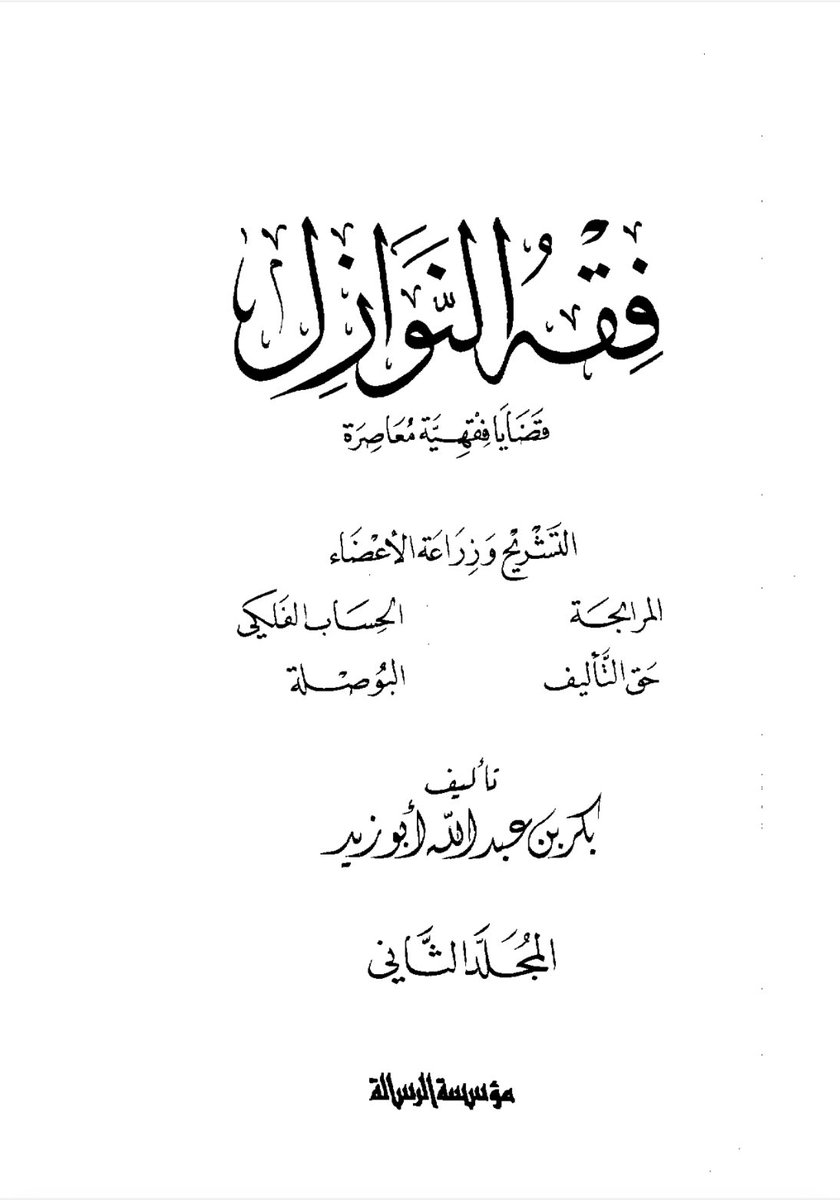 فِقْهُ النَّوَازِلِ
قَضَايَا فِقْهِيَّة مُعَاصِرَة
التَشْرِيْح وَزِرَاعَة الأَعْضَاء
المرابحَة
الحِسَاب الفَلَكِي
حَق التَّأليف
البُوصْلة
تأليف
بكر بن عبد الله أبو زيد
المُجَلَّد الثَّاني
مؤسسة الرسالة